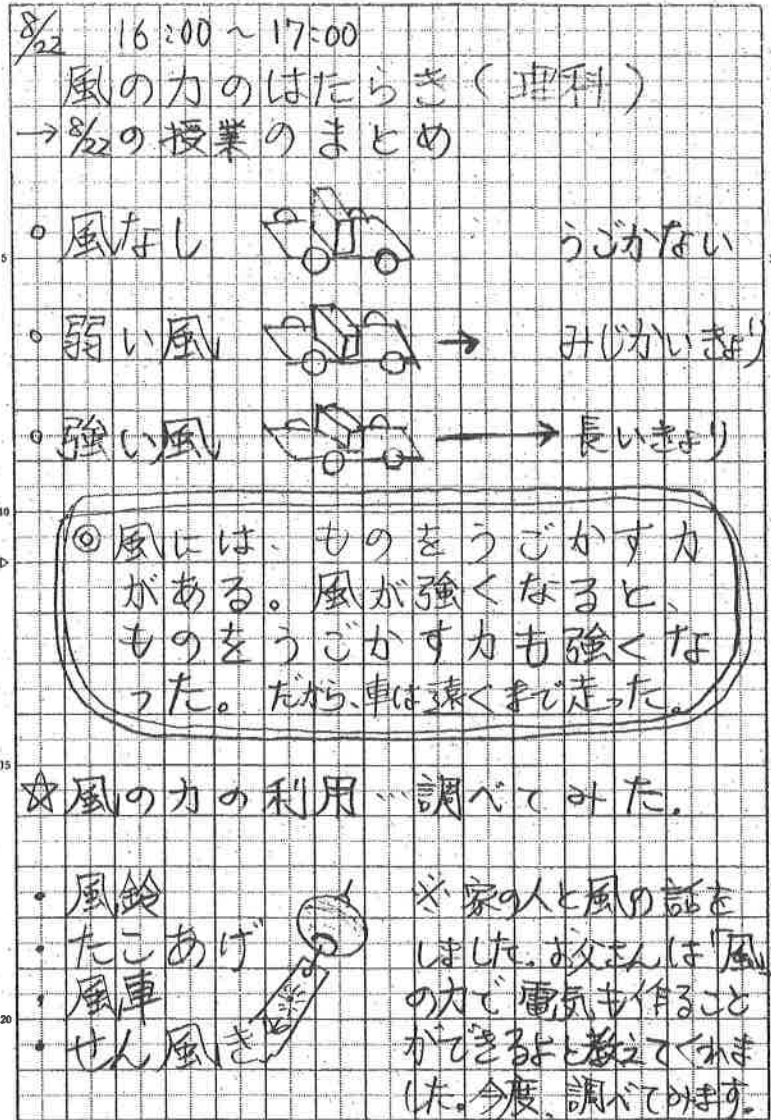 8/22 16:00～17:00
風の力のはたらき(理科)
→8/22の授業のまとめ
○風なし うごかない
○弱い風 → みじかいきょり
○強い風 → 長いきょり
◎風には、ものをうごかす力
がある。風が強くなると、
ものをうごかす力も強くな
った。だから、車は遠くまで走った。
☆風の力の利用…調べてみた。
・風鈴
・たこあげ
・風車
・せん風き
※家の人と風の話を
しました。お父さんは「風
の力で電気も作ること
ができるよと教えてくれま
した。今度、調べてみます。
5
10
15
20